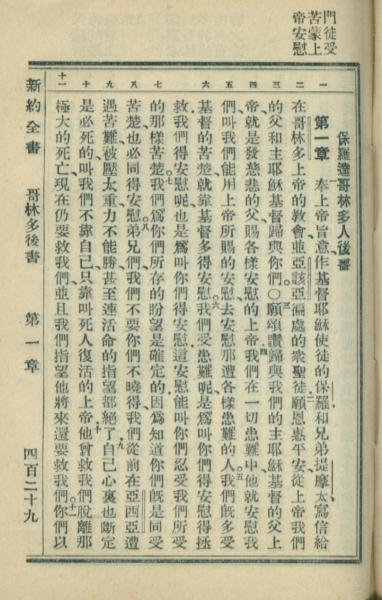 門徒受
苦蒙上
帝安慰
保羅達哥林多人後書
一 二 三 四 五 六 七 八 九 十 十一
第一章 奉上帝旨意作基督耶穌使徒的保羅和兄弟提摩太寫信給
在哥林多上帝的教會並亞該亞徧處的衆聖徒二願恩惠平安從上帝我們
的父和主耶穌基督歸與你們○三願頌讚歸與我們的主耶穌基督的父上
帝就是發慈悲的父賜各樣安慰的上帝四我們在一切患難中他就安慰我
們叫我們能用上帝所賜的安慰去安慰那遭各樣患難的人五我們旣多受
基督的苦楚就靠基督多得安慰六我們受患難呢是爲叫你們得安慰得拯
救我們得安慰呢也是爲叫你們得安慰這安慰能叫你們忍受我們所受
的那樣苦楚七我們爲你們所存的盼望是確定的因爲知道你們旣是同受
苦楚也必同得安慰八弟兄們我們不要你們不曉得我們從前在亞西亞遭
遇苦難被壓太重力不能勝甚至連活命的指望都絕了九自己心裏也斷定
是必死的叫我們不靠自己只靠叫死人復活的上帝十他曾救我們脫離那
極大的死亡現在仍要救我們並且我們指望他將來還要救我們十一你們以
新約全書 哥林多後書 第一章 四百二十九